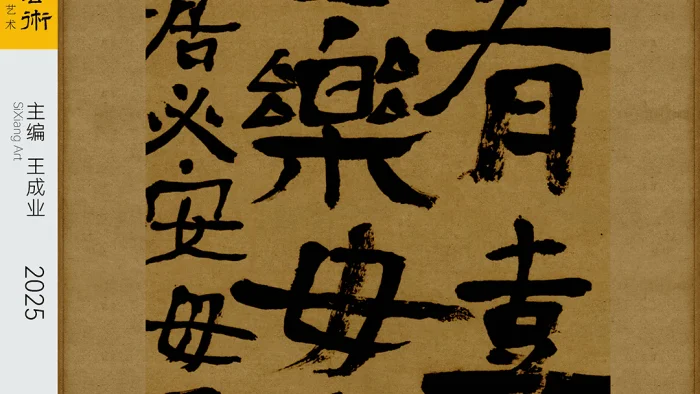 有喜
樂毋
居必安毋
術
艺术
主编 王成业
SiXiang Art
2025